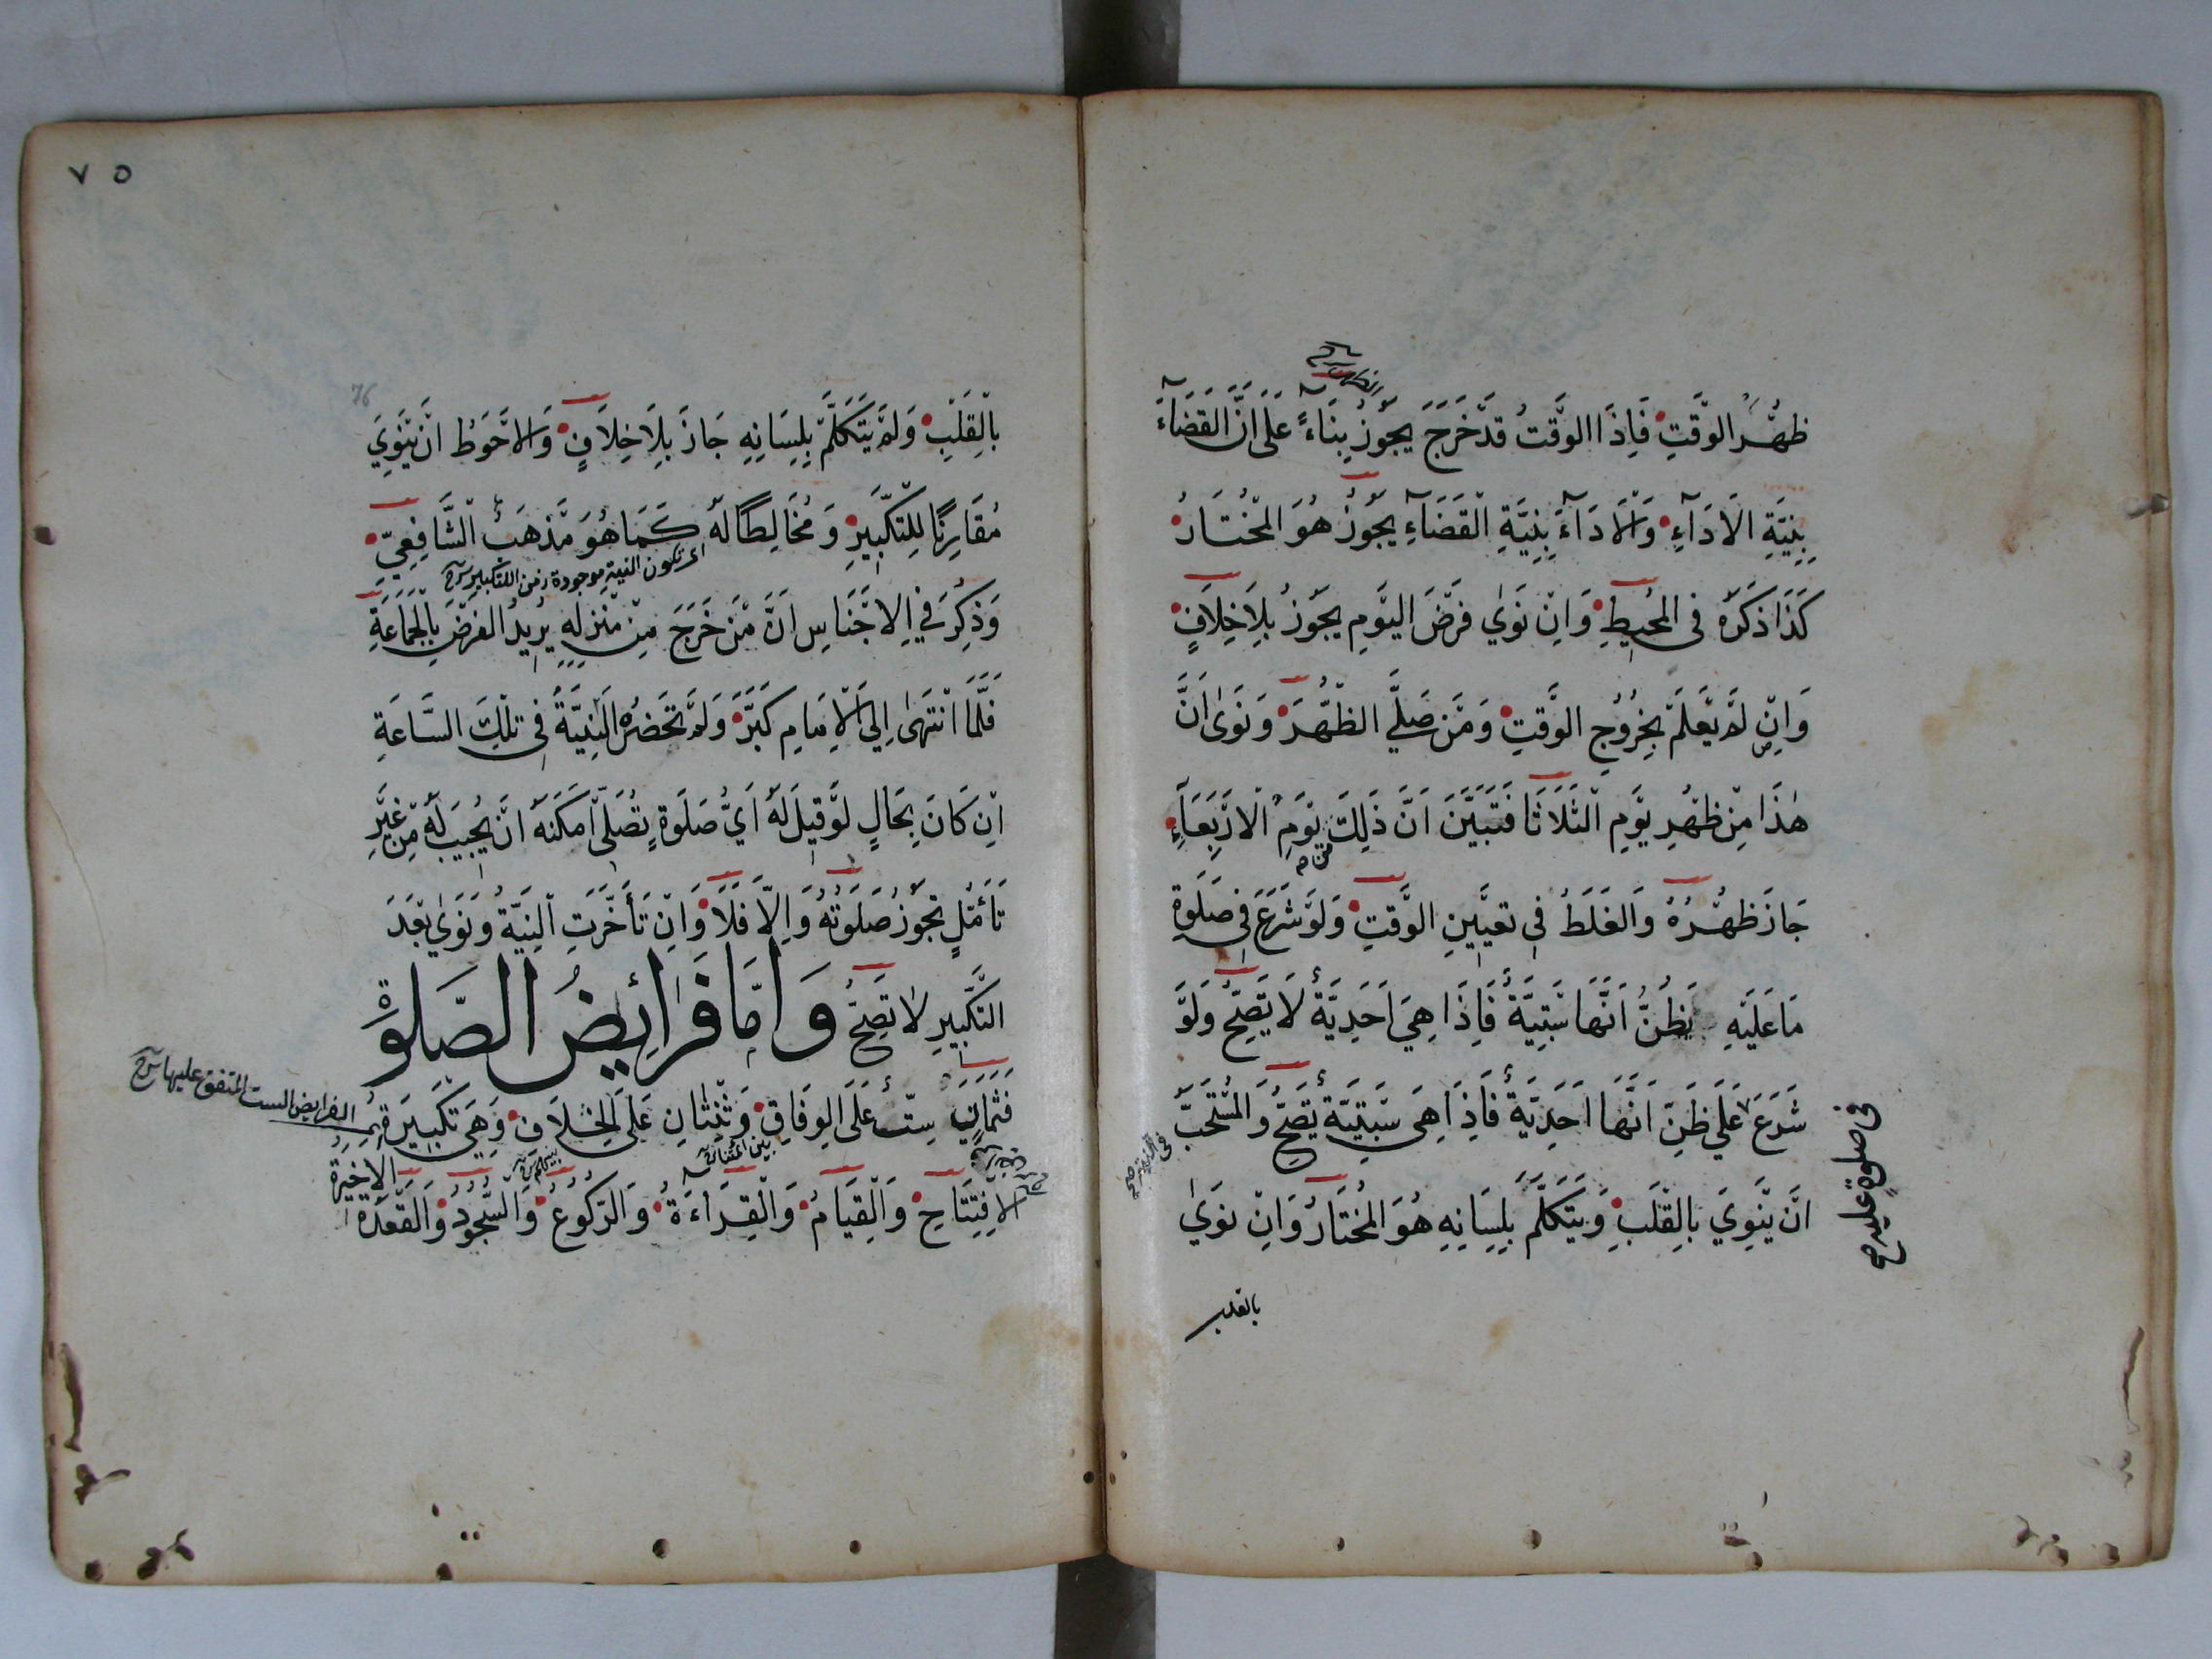 ظُهْرُ الْوَقْتِ فَاِذَا الْوَقْتُ قَدْ خَرَجَ يَجُوزُ بِنَاءً عَلَى اَنَّ الْقَضَاءَ
بِنِيَّةِ الْاَدَاءِ وَالْاَدَاءَ بِنِيَّةِ الْقَضَاءِ يَجُوزُ هُوَ الْمُخْتَارُ
كَذَا ذَكَرَهُ فِى الْمُحِيطِ وَاِنْ نَوَى فَرْضَ الْيَوْمِ يَجُوزُ بِلَا خِلَافٍ
وَاِنْ لَمْ يَعْلَمْ بِخُرُوجِ الْوَقْتِ وَمَنْ صَلَّى الظُّهْرَ وَنَوَى اَنَّ
هٰذَا مِنْ ظُهْرِ يَوْمِ الثَّلَاثَا فَتَبَيَّنَ اَنَّ ذَلِكَ يَوْمِ الْاَرْبَعَاءِ
من
جَازَ ظُهْرُهُ وَالْغَلَطُ فِى تَعْيِينِ الْوَقْتِ وَلَوْ شَرَعَ فِى صَلَوةِ
مَا عَلَيْهِ يَظُنُّ اَنَّهَا سَبْتِيَّةٌ فَاِذَا هِيَ اَحَدِيَّةٌ لَا يَصِحُّ وَلَوْ
شَرَعَ عَلَى ظَنِّ اَنَّهَا اَحَدِيَّةٌ فَاِذَا هِيَ سَبْتِيَّةٌ تَصِحُّ وَالْمُسْتَحَبُّ
اَنْ يَنْوِيَ بِالْقَلْبِ وَيَتَكَلَّمَ بِلِسَانِهِ هُوَ الْمُخْتَارُ وَاِنْ نَوَى
فى صلوة عليه
بالقلب
٧٥
76
بِالْقَلْبِ وَلَمْ يَتَكَلَّمْ بِلِسَانِهِ جَازَ بِلَا خِلَافٍ وَالْاَحْوَطُ اَنْ يَنْوِيَ
مُقَارِنًا لِلتَّكْبِيرِ وَمُخَالِطًا لَهُ كَمَا هُوَ مَذْهَبُ الشَّافِعِيّ
النية موجودة زمن التكبير
وَذُكِرَ فِي الْاَجْنَاسِ اَنَّ مَنْ خَرَجَ مِنْ مَنْزِلِهِ يُرِيدُ الْفَرْضَ بِالْجَمَاعَةِ
فَلَمَّا انْتَهَى اِلَى الْاِمَامِ كَبَّرَ وَلَمْ تَحْضُرْهُ النِّيَّةُ فِى تِلْكَ السَّاعَةِ
اِنْ كَانَ بِحَالٍ لَوْ قِيلَ لَهُ اَيُّ صَلَوةٍ تُصَلِّى اَمْكَنَهُ اَنْ يُجِيبَ لَهُ مِنْ غَيْرِ
تَأَمُّلٍ تَجُوزُ صَلَوتُهُ وَاِلَّا فَلَا وَاِنْ تَأَخَّرَتِ النِّيَّةُ وَنَوَى بَعْدَ
التَّكْبِيرِ لَا تَصِحُّ وَاَمَّا فَرَائِضُ الصَّلٰوةِ
فَثَمَانٍ سِتٌّ عَلَى الْوِفَاقِ وَثِنْتَانِ عَلَى الْخِلَافِ وَهِيَ تَكْبِيرَةُ
الفرايض الست المتفق عليها
بين ائمتنا
الْاِفْتِتَاحِ وَالْقِيَامُ وَالْقِرَاءَةُ وَالرُّكُوعُ وَالسُّجُودُ وَالْقَعْدَةُ
الاخيرة